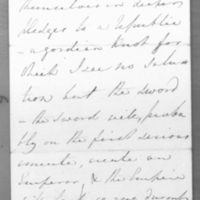 themselves in deeper
pledges to a Republic
- a gordian knot for
which I see no solu
tion but the sword
- the sword will, proba
bly on the first serious
emeute, create an
Emperor, & the Empire